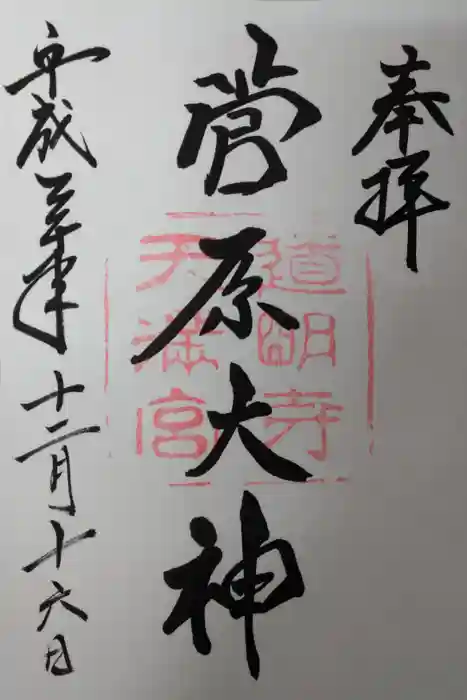 奉拝
菅原大神
道明寺
天満宮
平成三十年十二月十六日